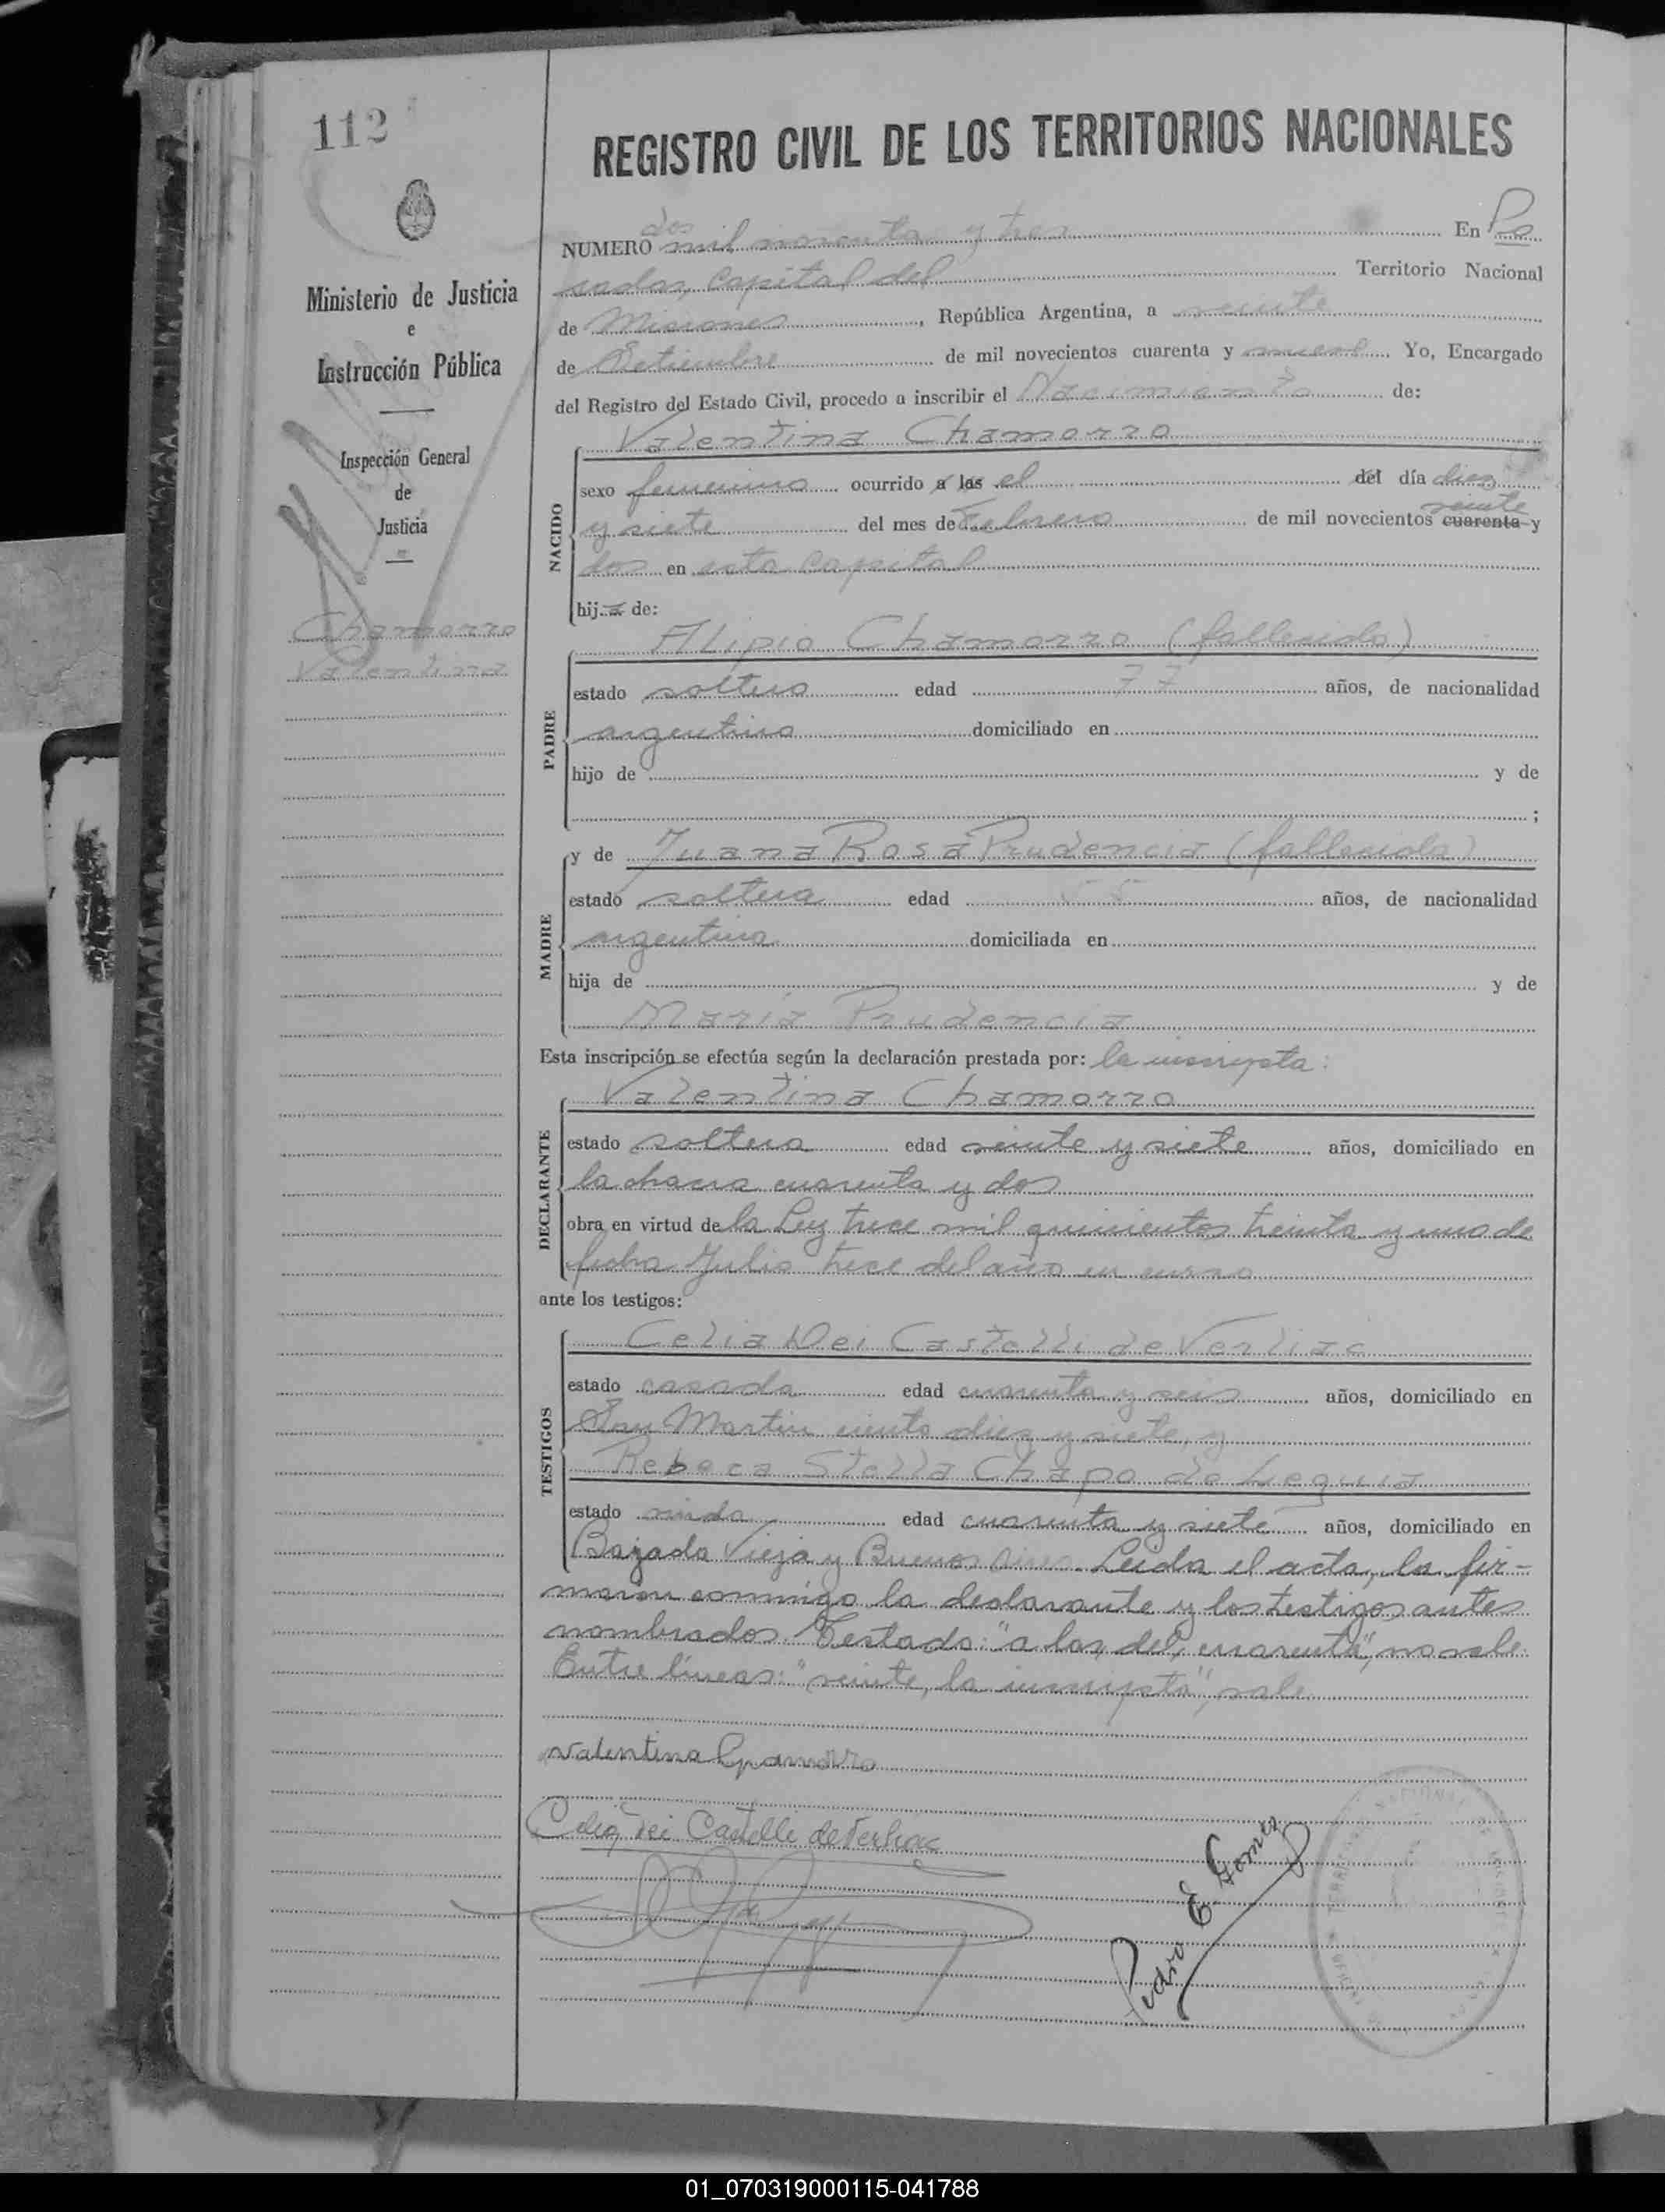 112
REGISTRO CIVIL DE LOS TERRITORIOS NACIONALES
dos
NUMERO mil noventa y tres En Po
sadas, Capital del Territorio Nacional
de Misiones, República Argentina, a veinte
de Setiembre de mil novecientos cuarenta y nueve. Yo, Encargado
del Registro del Estado Civil, procedo a inscribir el Nacimiento de:
Ministerio de Justicia
e
Instrucción Pública
Inspección General
de
Justicia
Chamorro
Valentina
Valentina Chamorro
NACIDO
sexo femenino ocurrido a las el del día diez
veinte
y siete del mes de Febrero de mil novecientos cuarenta y
dos en esta Capital
hij a de:
Alipio Chamorro (fallecido)
PADRE
estado soltero edad 77 años, de nacionalidad
argentino domiciliado en
hijo de y de
;
y de Juana Rosa Prudencia (fallecida)
MADRE
estado soltera edad años, de nacionalidad
argentina domiciliada en
hija de y de
Maria Prudencia
Esta inscripción se efectúa según la declaración prestada por: la inscripta:
Valentina Chamorro
DECLARANTE
estado soltera edad veinte y siete años, domiciliado en
la chacra cuarenta y dos
obra en virtud de la Ley trece mil quinientos treinta y uno de
fecha Julio trece del año en curso
ante los testigos:
Celia Dei Castelli de Verliac
TESTIGOS
estado casada edad cuarenta y seis años, domiciliado en
San Martin ciento diez y siete, y
Rebeca Stella Chapo de Leguia
estado viuda edad cuarenta y siete años, domiciliado en
Bajada Vieja y Buenos Aires. Leída el acta, la fir-
maron conmigo la declarante y los testigos antes
nombrados. Testado: "a las, del, cuarenta", no vale.
Entre líneas: "veinte, la inscripta", vale.
Valentina Chamorro
Celia Dei Castelli de Verliac
Pedro E. Gomez
01_070319000115-041788